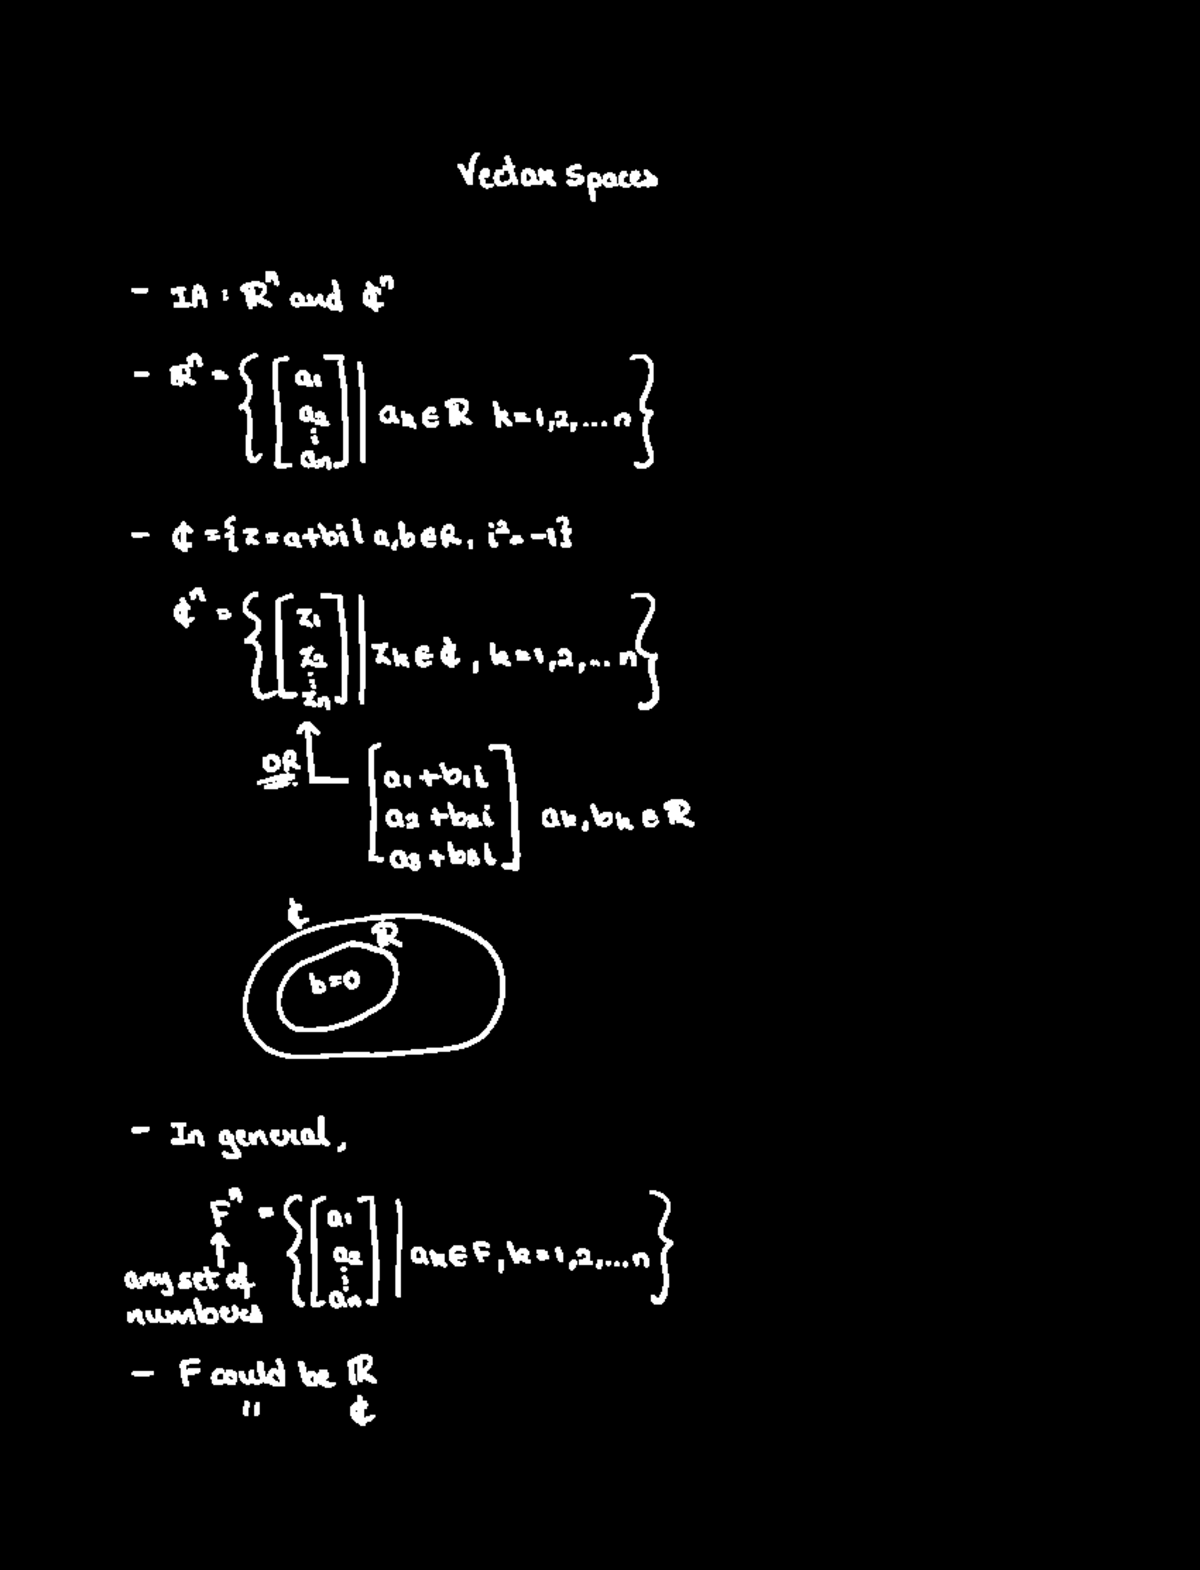 Vector Spaces
- IA : ℝⁿ and ℂⁿ
- ℝⁿ = { [ a₁ a₂ ⋮ aₙ ] | aₖ ∈ ℝ k = 1,2,...n }
- ℂ = {z = a+bi | a,b ∈ R, i² = -1}
ℂⁿ = { [ z₁ z₂ ⋮ zₙ ] | zₖ ∈ ℂ, k = 1,2,... n }
OR
[ a₁ + b₁i
a₂ + b₂i aₖ, bₖ ∈ ℝ
a₃ + b₃i ]
ℂ
ℝ
b = 0
- In general,
Fⁿ = { [ a₁ a₂ ⋮ aₙ ] | aₖ ∈ F, k = 1,2,...n }
↑
any set of
numbers
- F could be ℝ
" ℂ